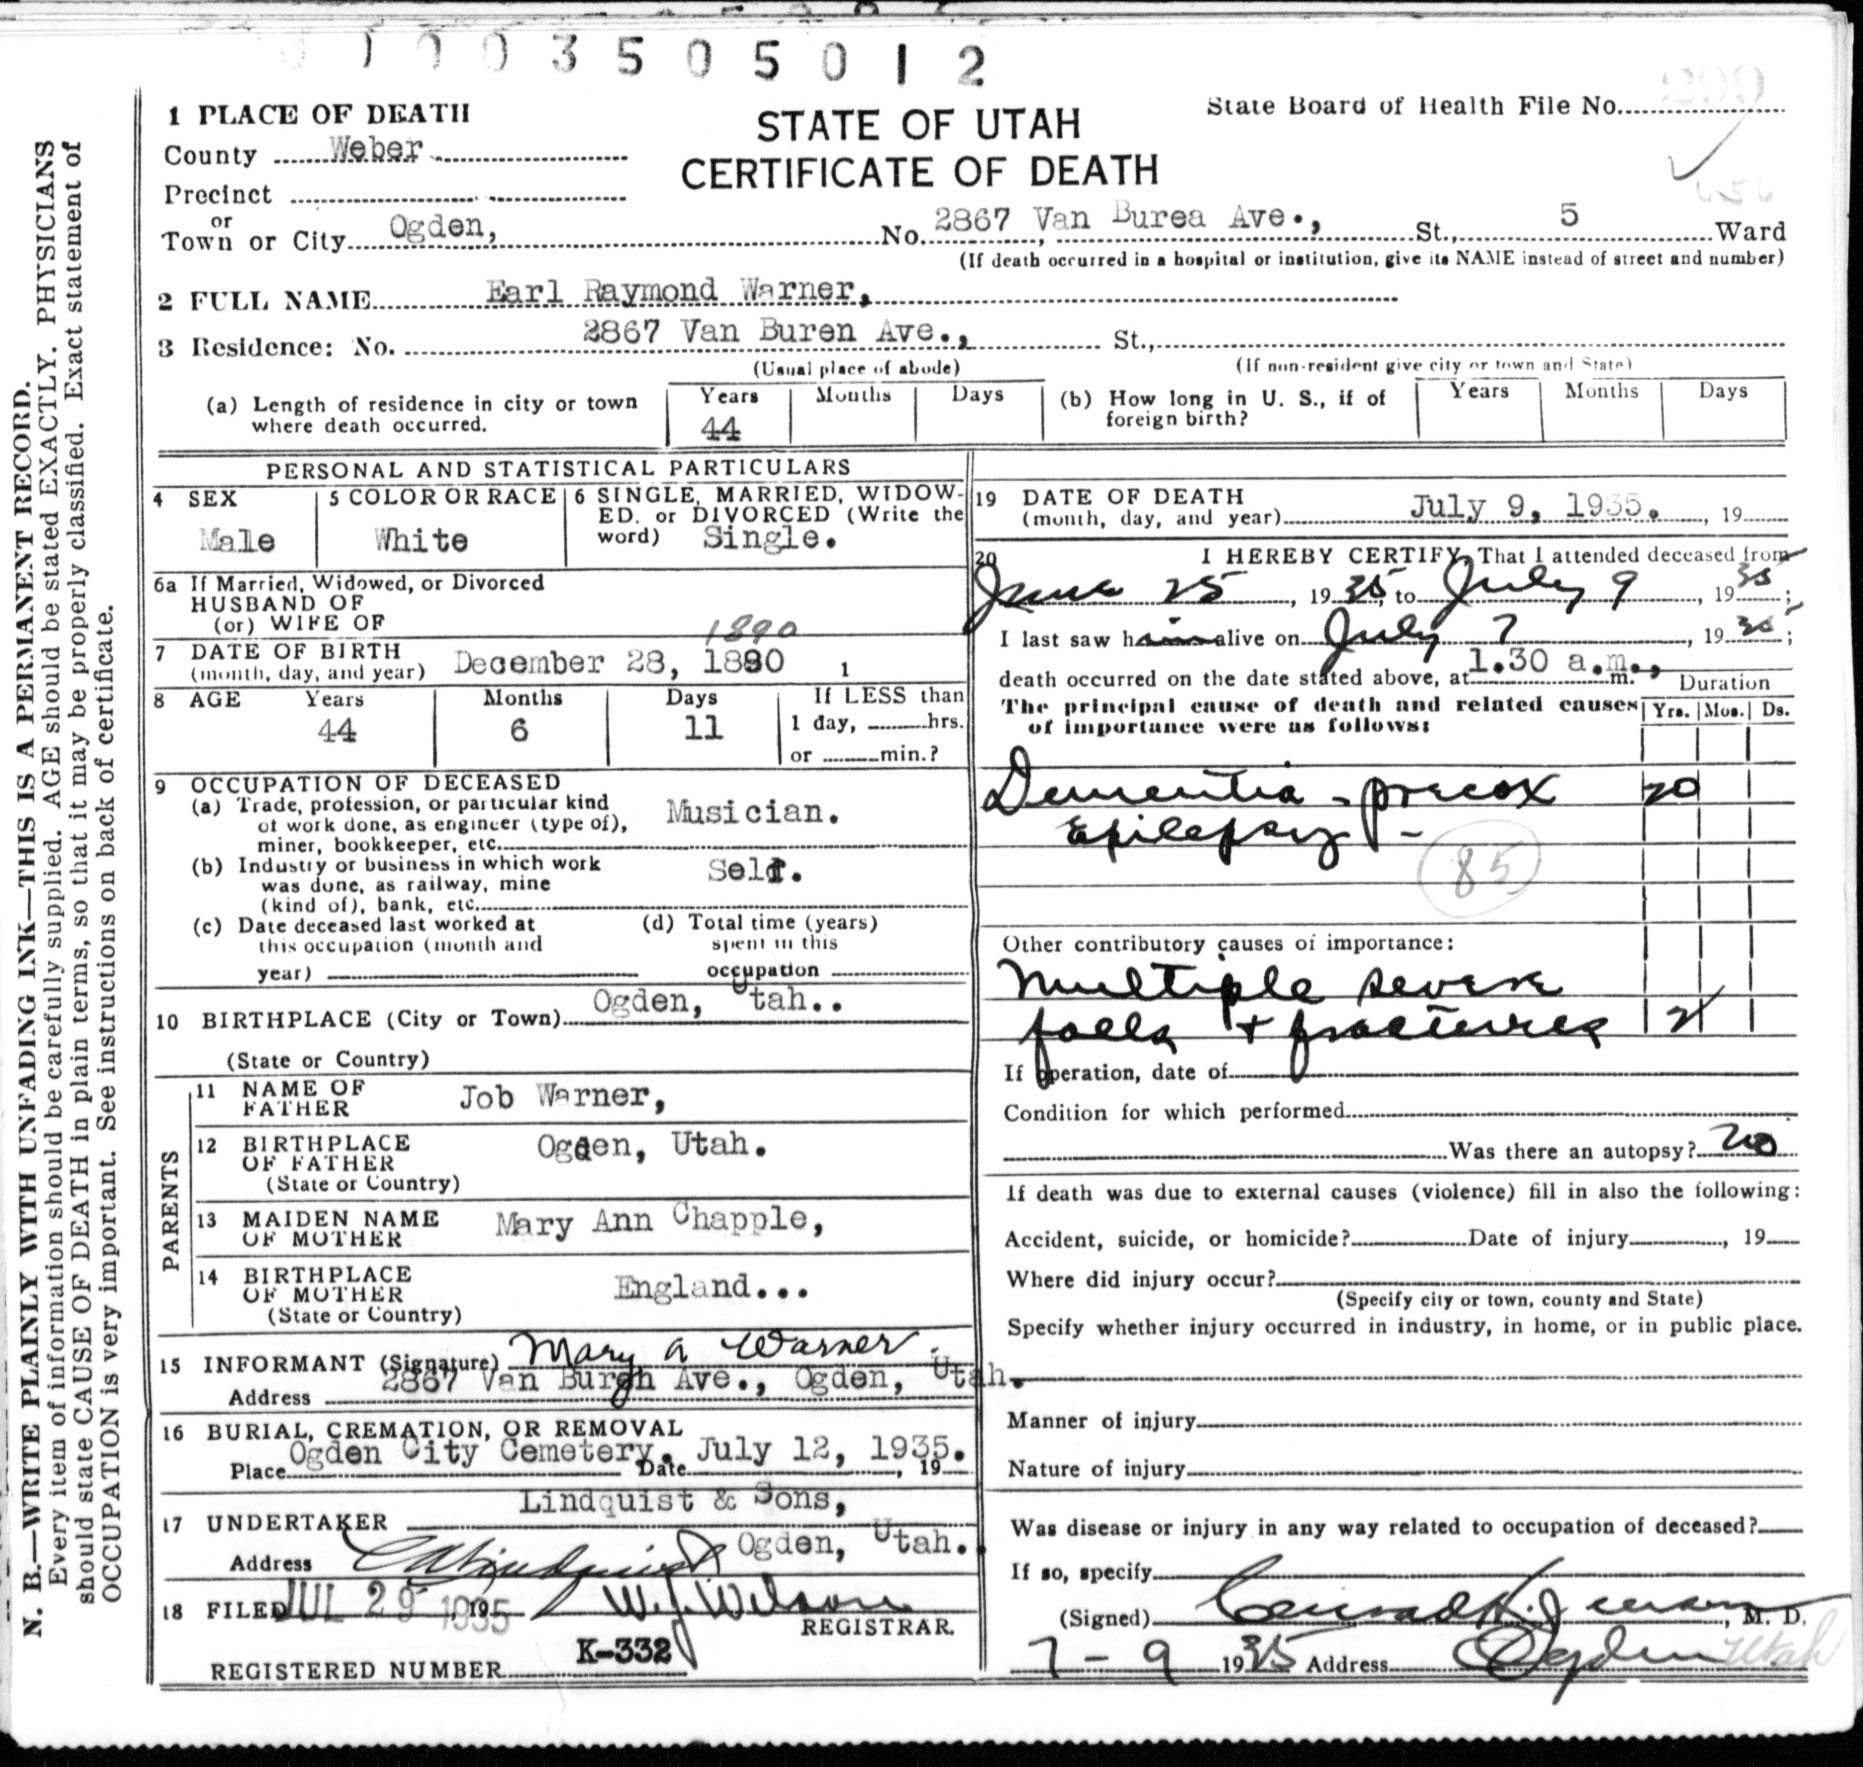 1003505012
1 PLACE OF DEATH
County Weber
Precinct
or
Town or City Ogden, No. 2867 Van Burea Ave., St., 5 Ward
STATE OF UTAH
CERTIFICATE OF DEATH
State Board of Health File No. 299
(If death occurred in a hospital or institution, give its NAME instead of street and number)
2 FULL NAME Earl Raymond Warner,
3 Residence: No. 2867 Van Buren Ave., St.,
(Usual place of abode) (If non-resident give city or town and State)
(a) Length of residence in city or town where death occurred. Years 44 Months Days
(b) How long in U. S., if of foreign birth? Years Months Days
PERSONAL AND STATISTICAL PARTICULARS
4 SEX Male
5 COLOR OR RACE White
6 SINGLE, MARRIED, WIDOW-
ED. or DIVORCED (Write the
word) Single.
6a If Married, Widowed, or Divorced
HUSBAND OF
(or) WIFE OF
1890
7 DATE OF BIRTH
(month, day, and year) December 28, 1880 1
8 AGE Years Months Days If LESS than
44 6 11 1 day, hrs.
or min.?
9 OCCUPATION OF DECEASED
(a) Trade, profession, or particular kind
of work done, as engineer (type of),
miner, bookkeeper, etc. Musician.
(b) Industry or business in which work
was done, as railway, mine
(kind of), bank, etc. Self.
(c) Date deceased last worked at
this occupation (month and
year)
(d) Total time (years)
spent in this
occupation
10 BIRTHPLACE (City or Town) Ogden, Utah..
(State or Country)
PARENTS
11 NAME OF
FATHER Job Warner,
12 BIRTHPLACE
OF FATHER Ogden, Utah.
(State or Country)
13 MAIDEN NAME
OF MOTHER Mary Ann Chapple,
14 BIRTHPLACE
OF MOTHER England...
(State or Country)
15 INFORMANT (Signature) Mary A Warner.
Address 2867 Van Buren Ave., Ogden, Utah.
16 BURIAL, CREMATION, OR REMOVAL
Place Ogden City Cemetery. Date July 12, 1935. , 19
17 UNDERTAKER Lindquist & Sons,
Address Ogden, Utah.
18 FILED JUL 29 1935 , 19 W. J. Wilson
REGISTRAR.
REGISTERED NUMBER K-332
19 DATE OF DEATH
(month, day, and year) July 9, 1935. , 19
20 I HEREBY CERTIFY, That I attended deceased from
June 25, 1935, to July 9, 1935;
I last saw him alive on July 7, 1935;
death occurred on the date stated above, at 1.30 a.m., m.
Duration
The principal cause of death and related causes
of importance were as follows:
Yrs. Mos. Ds.
Dementia - precox 20
Epilepsy -
85
Other contributory causes of importance:
Multiple severe
falls + fractures 2
If operation, date of
Condition for which performed
Was there an autopsy? no
If death was due to external causes (violence) fill in also the following:
Accident, suicide, or homicide? Date of injury , 19
Where did injury occur?
(Specify city or town, county and State)
Specify whether injury occurred in industry, in home, or in public place.
Manner of injury
Nature of injury
Was disease or injury in any way related to occupation of deceased?
If so, specify
(Signed) Conrad H. Jenson, M. D.
7-9 1935 Address Ogden Utah
N. B.—WRITE PLAINLY WITH UNFADING INK—THIS IS A PERMANENT RECORD.
Every item of information should be carefully supplied. AGE should be stated EXACTLY. PHYSICIANS
should state CAUSE OF DEATH in plain terms, so that it may be properly classified. Exact statement of
OCCUPATION is very important. See instructions on back of certificate.